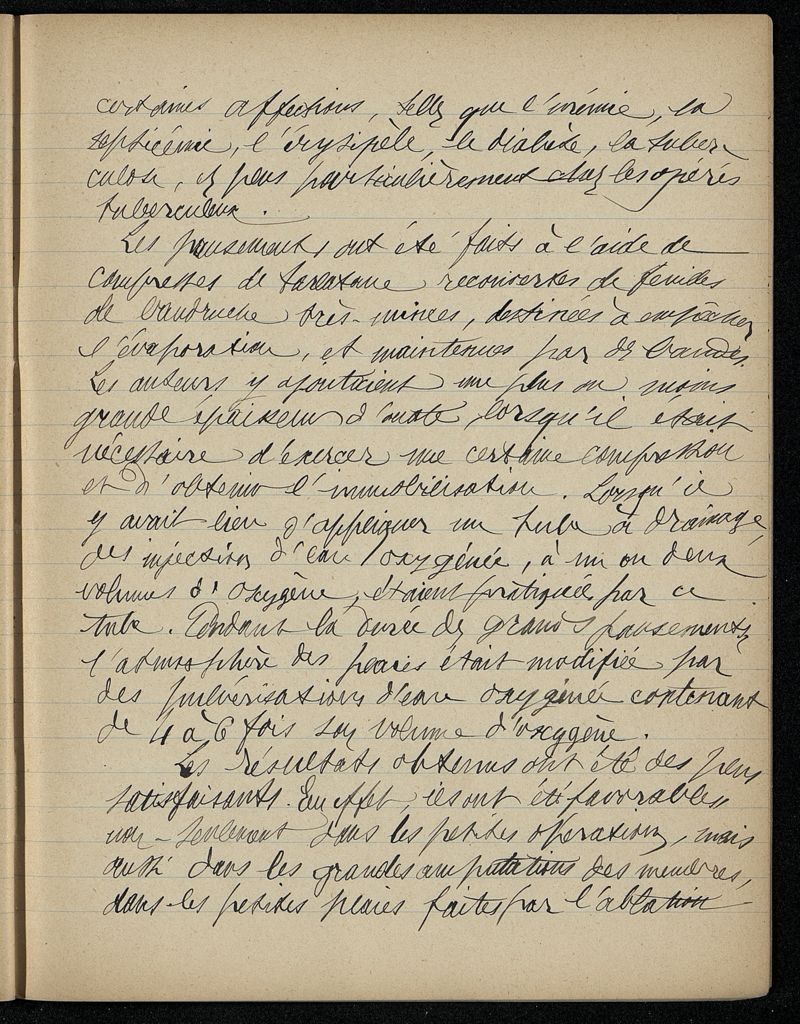 certaines affections, telles que l'urémie, la
septicémie, l'érysipèle, le diabète, la tuber-
culose, et plus particulièrement chez les opérés
tuberculeux.
Les pansements ont été faits à l'aide de
compresses de tarlatane recouvertes de feuilles
de baudruche très-minces, destinées à empêcher
l'évaporation, et maintenues par des bandes.
Les auteurs y ajoutaient une plus ou moins
grande épaisseur d'ouate, lorsqu'il était
nécessaire d'exercer une certaine compression
et d'obtenir l'immobilisation. Lorsqu'il
y avait lieu d'appliquer un tube à drainage,
des injections d'eau oxygénée, à un ou deux
volumes d'oxygène, étaient pratiquées par ce
tube. Pendant la durée des grands pansements,
l'atmosphère des plaies était modifiée par
des pulvérisations d'eau oxygénée contenant
de 4 à 6 fois son volume d'oxygène.
Les résultats obtenus ont été des plus
satisfaisants. En effet, ils ont été favorables
non-seulement dans les petites opérations, mais
aussi dans les grandes amputations des membres,
dans les petites plaies faites par l'ablation